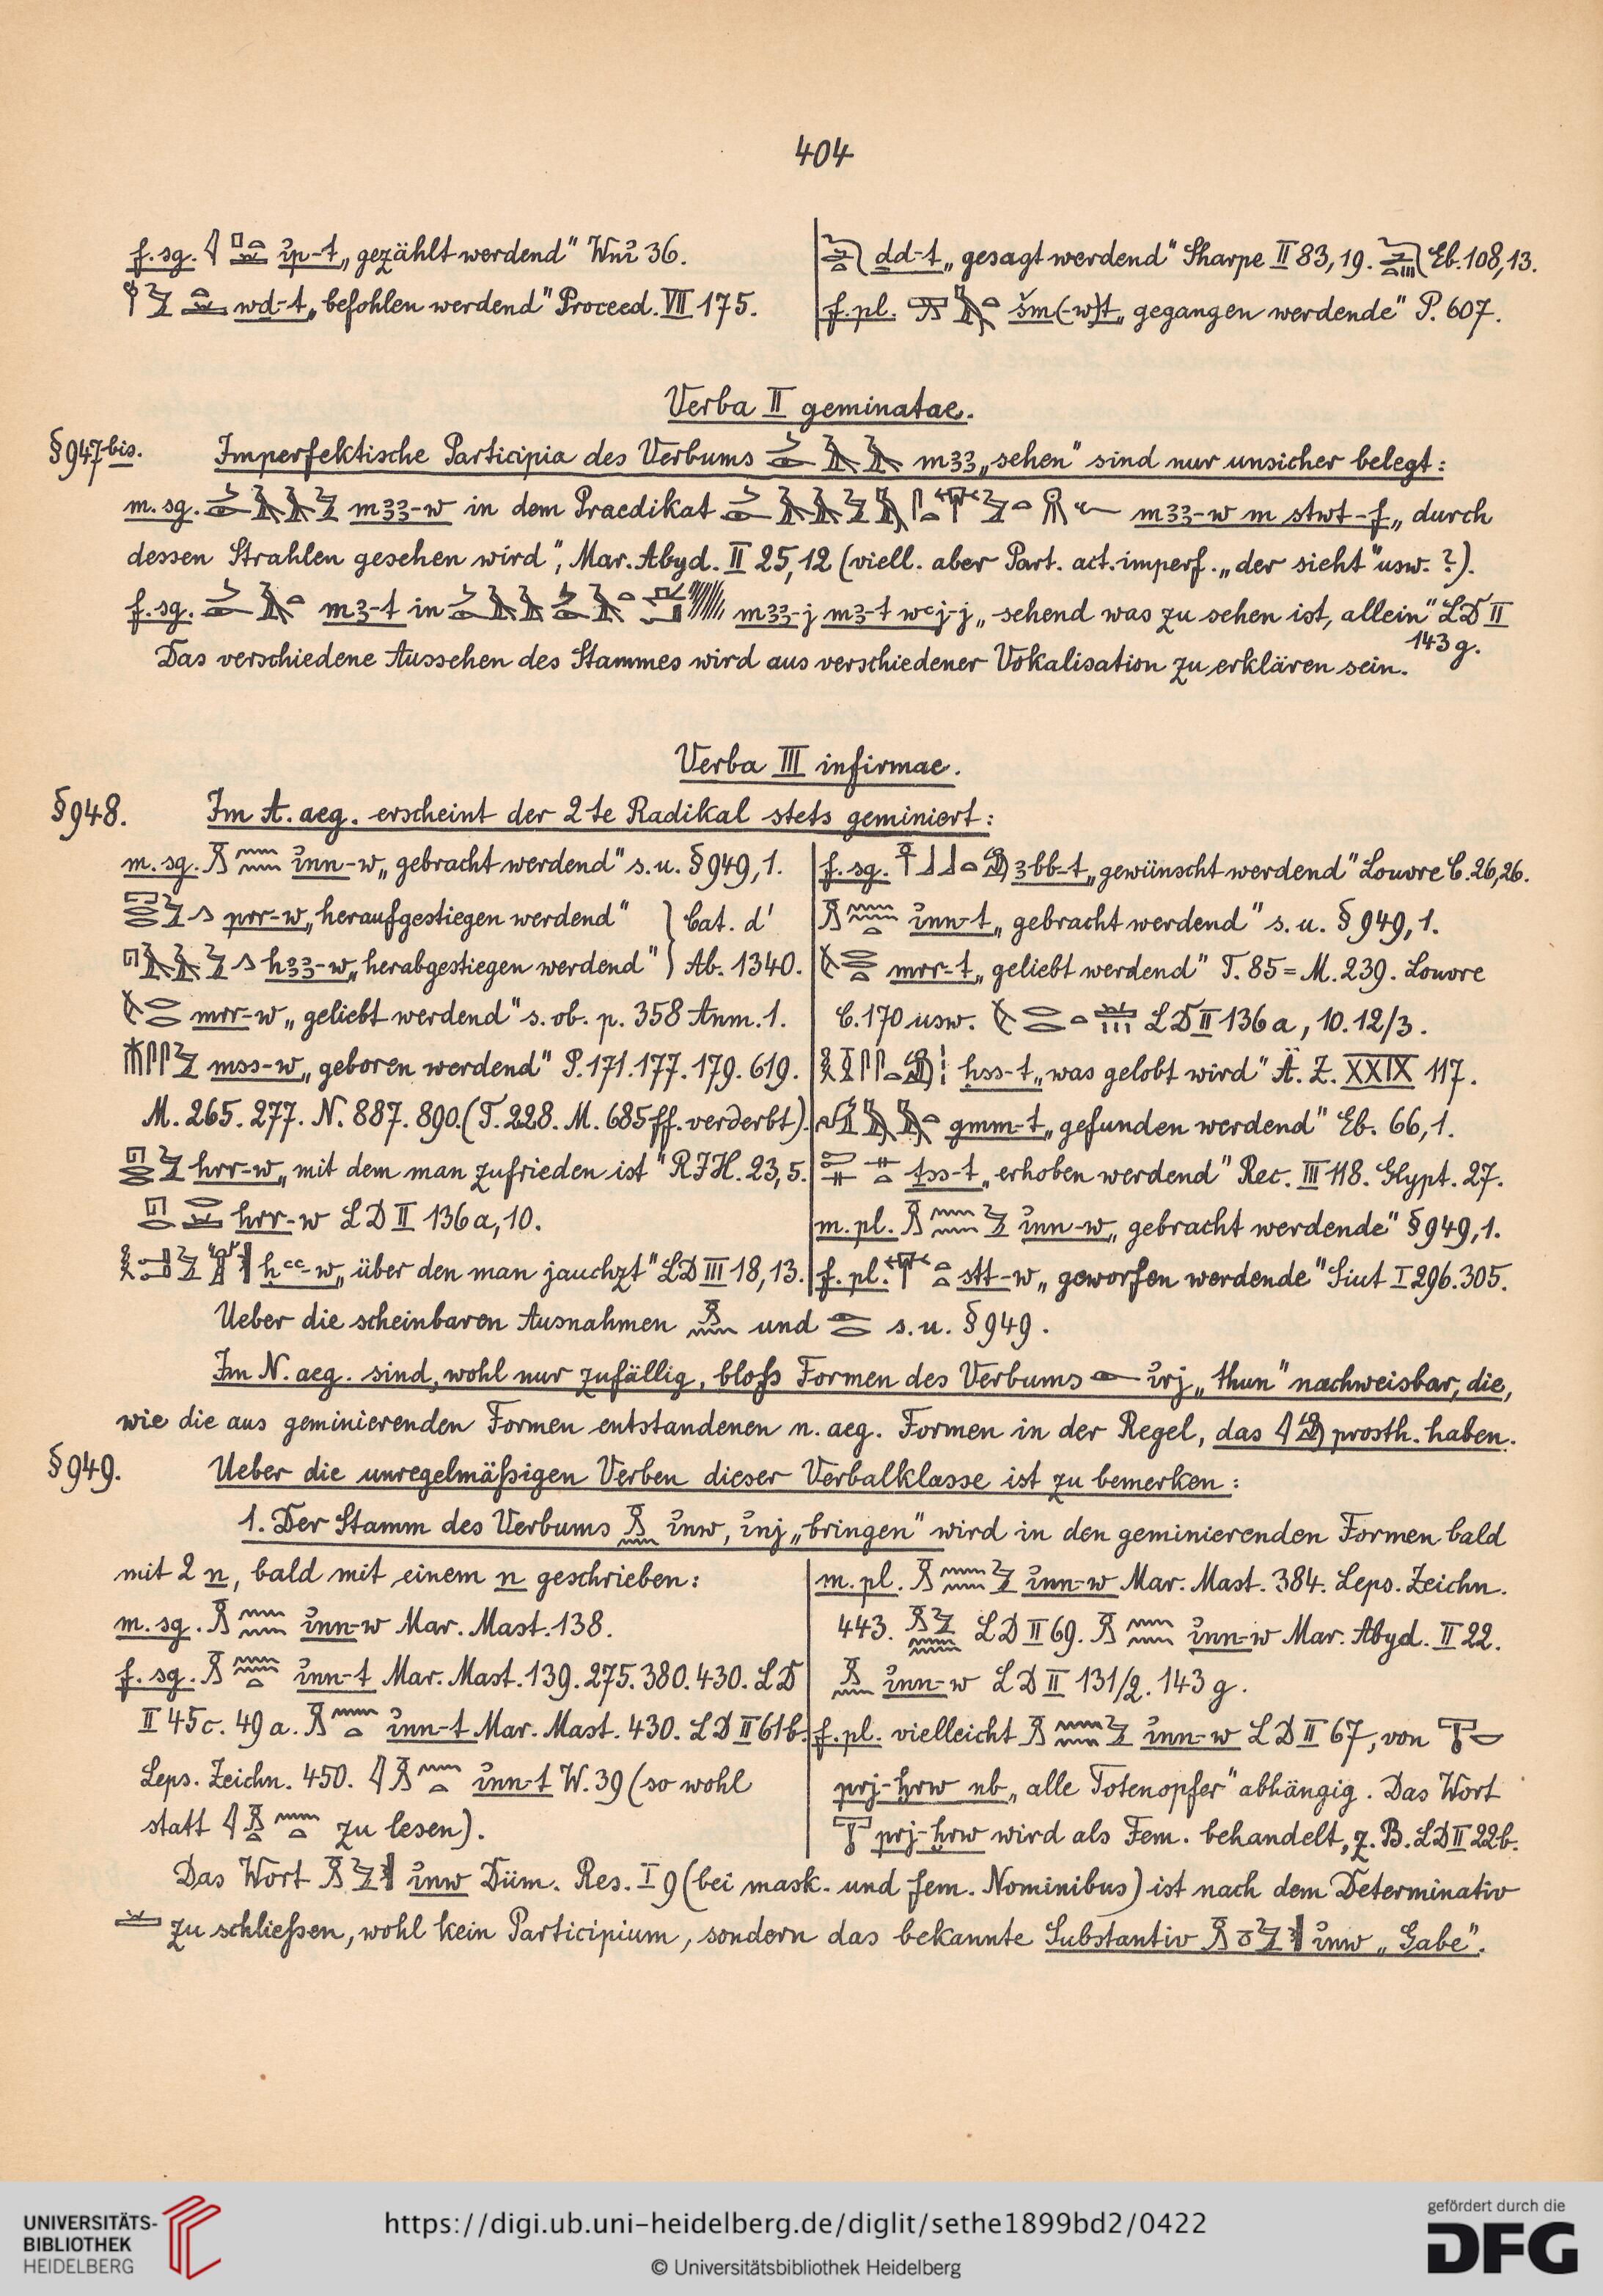 404
f. sg. ỉp-t „gezählt werdend" Wnỉ 36.
wd-t „befohlen werdend" Proceed. VII 175.
dd-t „gesagt werdend" Sharpe II 83,19. Eb. 108,13.
f. pl. šm(-w)t „gegangen werdende" P. 607.
Verba II geminatae.
§ 947 bis. Imperfektische Participia des Verbums mꜣꜣ „sehen" sind nur unsicher belegt:
m. sg. mꜣꜣ-w in dem Praedikat mꜣꜣ-w m stwt-f „durch
dessen Strahlen gesehen wird", Mar. Abyd. II 25,12 (viell. aber Part. act. imperf. „der sieht" usw. ?).
f. sg. mꜣ-t in mꜣꜣ-j mꜣ-t wꜥj-j „sehend was zu sehen ist, allein" LD II
143 g.
Das verschiedene Aussehen des Stammes wird aus verschiedener Vokalisation zu erklären sein.
Verba III infirmae.
§ 948. Im A. aeg. erscheint der 2te Radikal stets geminiert:
m. sg. ỉnn-w „gebracht werdend" s. u. § 949,1.
prr-w „heraufgestiegen werdend" } Cat. d'
hꜣꜣ-w „herabgestiegen werdend" } Ab. 1340.
mrr-w „geliebt werdend" s. ob. p. 358 Anm. 1.
mss-w „geboren werdend" P. 171. 177. 179. 619.
M. 265. 277. N. 887. 890. (T. 228. M. 685 ff. verderbt).
hrr-w „mit dem man zufrieden ist" RIH. 23,5.
hrr-w LD II 136 a, 10.
ḥꜥꜥ-w „über den man jauchzt" LD III 18,13.
f. sg. ꜣbb-t „gewünscht werdend" Louvre C. 26,26.
ỉnn-t „gebracht werdend" s. u. § 949,1.
mrr-t „geliebt werdend" T. 85 = M. 239. Louvre
C. 170 usw. LD II 136 a, 10. 12/3.
ḥss-t „was gelobt wird" Ä. Z. XXIX 117.
gmm-t „gefunden werdend" Eb. 66,1.
tss-t „erhoben werdend" Rec. III 118. Glypt. 27.
m. pl. ỉnn-w „gebracht werdende" § 949,1.
f. pl. stt-w „geworfen werdende" Siut I 296. 305.
Ueber die scheinbaren Ausnahmen und s. u. § 949.
Im N. aeg. sind, wohl nur zufällig, bloß Formen des Verbums ỉrj „thun" nachweisbar, die,
wie die aus geminierenden Formen entstandenen n. aeg. Formen in der Regel, das prosth. haben.
§ 949. Ueber die unregelmäßigen Verben dieser Verbalklasse ist zu bemerken:
1. Der Stamm des Verbums ỉnw, ỉnj „bringen" wird in den geminierenden Formen bald
mit 2 n, bald mit einem n geschrieben:
m. sg. ỉnn-w Mar. Mast. 138.
f. sg. ỉnn-t Mar. Mast. 139. 275. 380. 430. LD
II 45 c. 49 a. ỉnn-t Mar. Mast. 430. LD II 61 b.
Leps. Zeichn. 450. ỉnn-t W. 39 (so wohl
statt zu lesen).
m. pl. ỉnn-w Mar. Mast. 384. Leps. Zeichn.
443. LD II 69. ỉnn-w Mar. Abyd. II 22.
ỉnn-w LD II 131/2. 143 g.
f. pl. vielleicht ỉnn-w LD II 67, von
prj-ḫrw nb „alle Totenopfer" abhängig. Das Wort
prj-ḫrw wird als Fem. behandelt, z. B. LD II 22 b.
Das Wort ỉnw Düm. Res. I 9 (bei mask. und fem. Nominibus) ist nach dem Determinativ
zu schließen, wohl kein Participium, sondern das bekannte Substantiv ỉnw „Gabe".
UNIVERSITÄTS-
BIBLIOTHEK
HEIDELBERG
https://digi.ub.uni-heidelberg.de/diglit/sethe1899bd2/0422
© Universitätsbibliothek Heidelberg
gefördert durch die
DFG